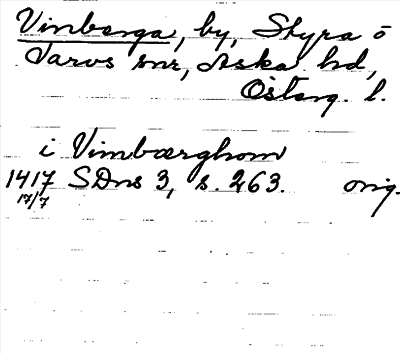 Vimberga, by, Styra o
Varvs snr, Aska hd,
Österg. l.
i Vimbærghom
1417 SDns 3, s. 263. orig.
17/7